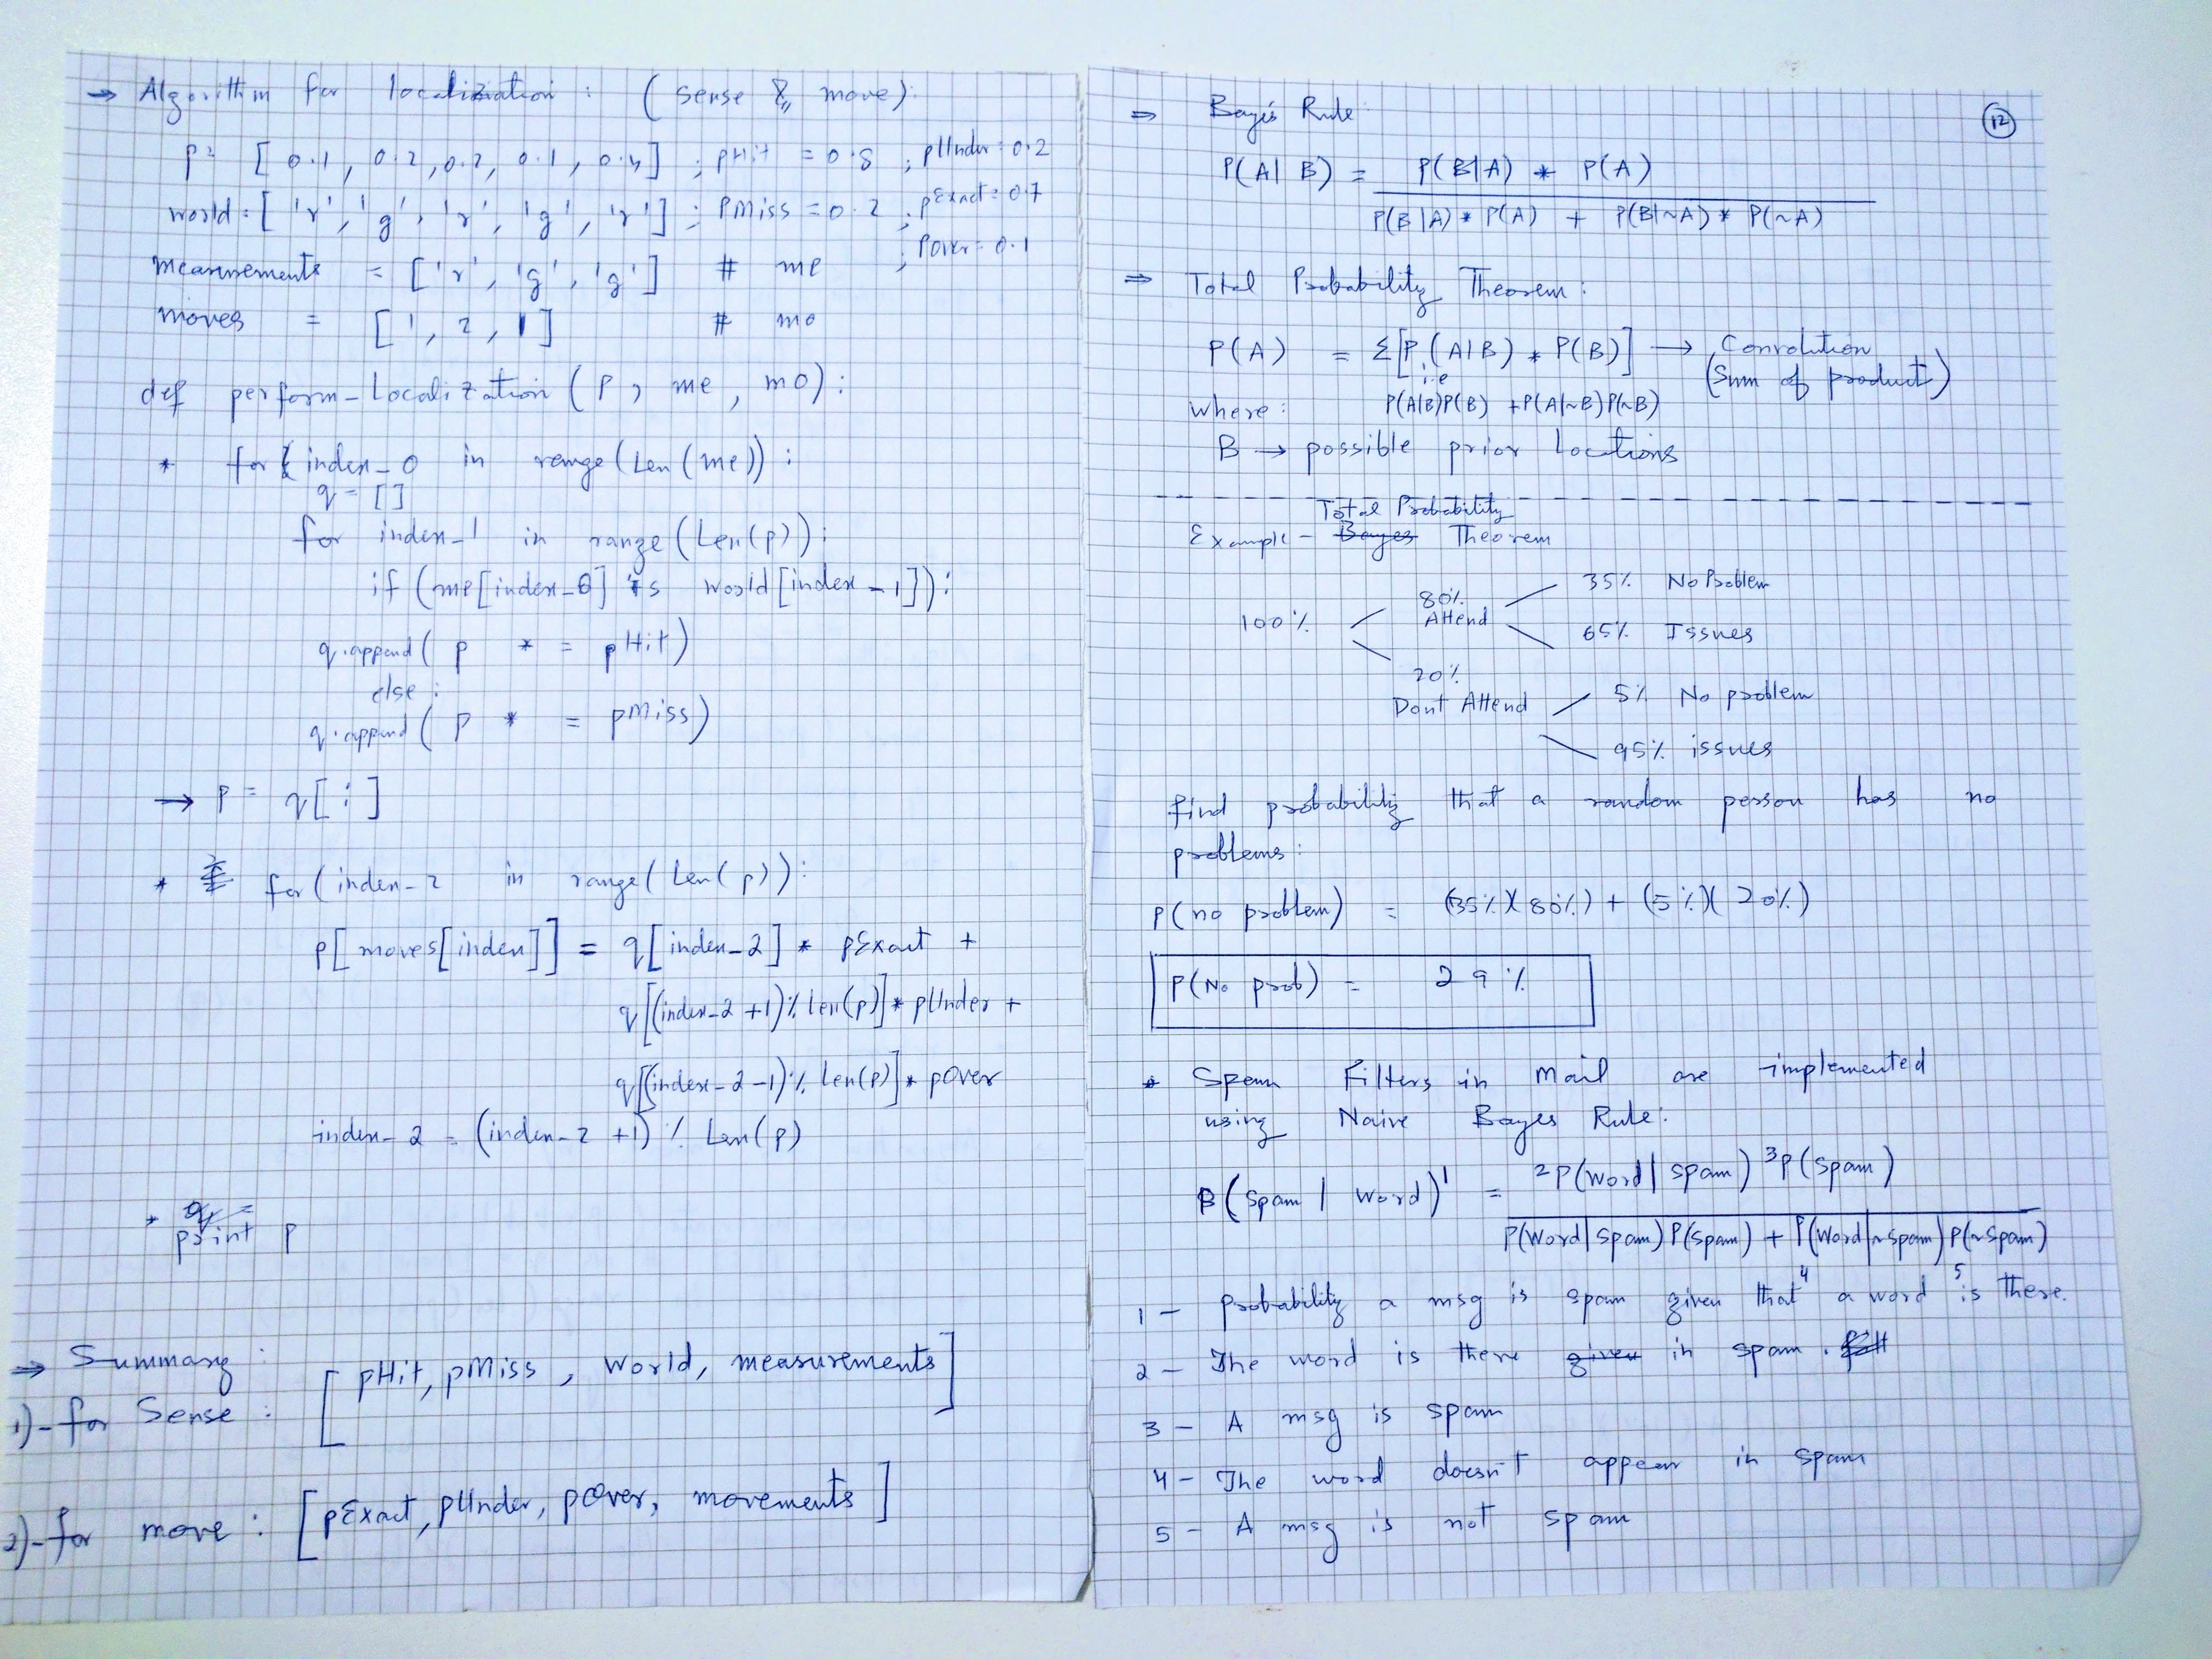 → Algorithm for localization : ( sense & move):
p= [ 0.1 , 0.2 , 0.2, 0.1 , 0.4 ] ; pHit = 0.8 ; pUnder = 0.2
world = [ 'r' , 'g' , 'r' , 'g' , 'r' ] ; pMiss = 0.2 ; pExact = 0.7
; pOver = 0.1
measurements = [ 'r' , 'g' , 'g' ] # me
moves = [ 1 , 2 , 1 ] # mo
def perform_Localization ( p , me , mo ) :
* for index_0 in range (Len (me)) :
q = []
for index_1 in range (Len(p)) :
if (me[index_0] is world [index_1]) :
q.append ( p * = pHit)
else :
q.append ( p * = pMiss)
→ p = q[:]
* for ( index_2 in range( Len( p)) :
p[ moves[index]] = q[ index_2] * pExact +
q[(index_2 +1)% Len(p)] * pUnder +
q[(index_2 -1)% Len(p)] * pOver
index_2 = (index_2 +1) % Len(p)
* print p
⇒ Summary :
1)- for Sense : [ pHit, pMiss , World, measurements ]
2)- for move : [ pExact, pUnder, pOver, movements ]
12
⇒ Baye's Rule:
P(A| B) = P(B|A) * P(A)
P(B|A) * P(A) + P(B|~A) * P(~A)
⇒ Total Probability Theorem :
P(A) = Σ[P(A|B) * P(B)] → Convolution
(Sum of product)
i.e
where : P(A|B)P(B) + P(A|~B)P(~B)
B → possible prior Locations
Total Probability
Example - Bayes Theorem
35% No Problem
80%
100% Attend
65% Issues
20%
Dont Attend 5% No problem
95% issues
find probability that a random person has no
problems :
P(no problem) = (35%)(80%) + (5%)(20%)
P(No prob) = 29%
* Spam Filters in Mail are implemented
using Naive Bayes Rule:
P(spam | word)¹ = ²P(word| spam) ³P(spam)
P(word|spam) P(spam) + P(word|~spam) P(~spam)
4 5
1 - probability a msg is spam given that a word is there.
2 - The word is there given in spam .
3 - A msg is spam
4 - The word doesn't appear in spam
5 - A msg is not spam